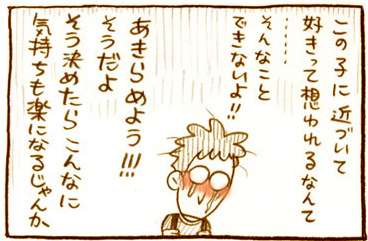 この子に近づいて
好きって想われるなんて
……
そんなこと
できないよ!!
あきらめよう!!!
そうだよ
そう決めたらこんなに
気持ちも楽になるじゃんか